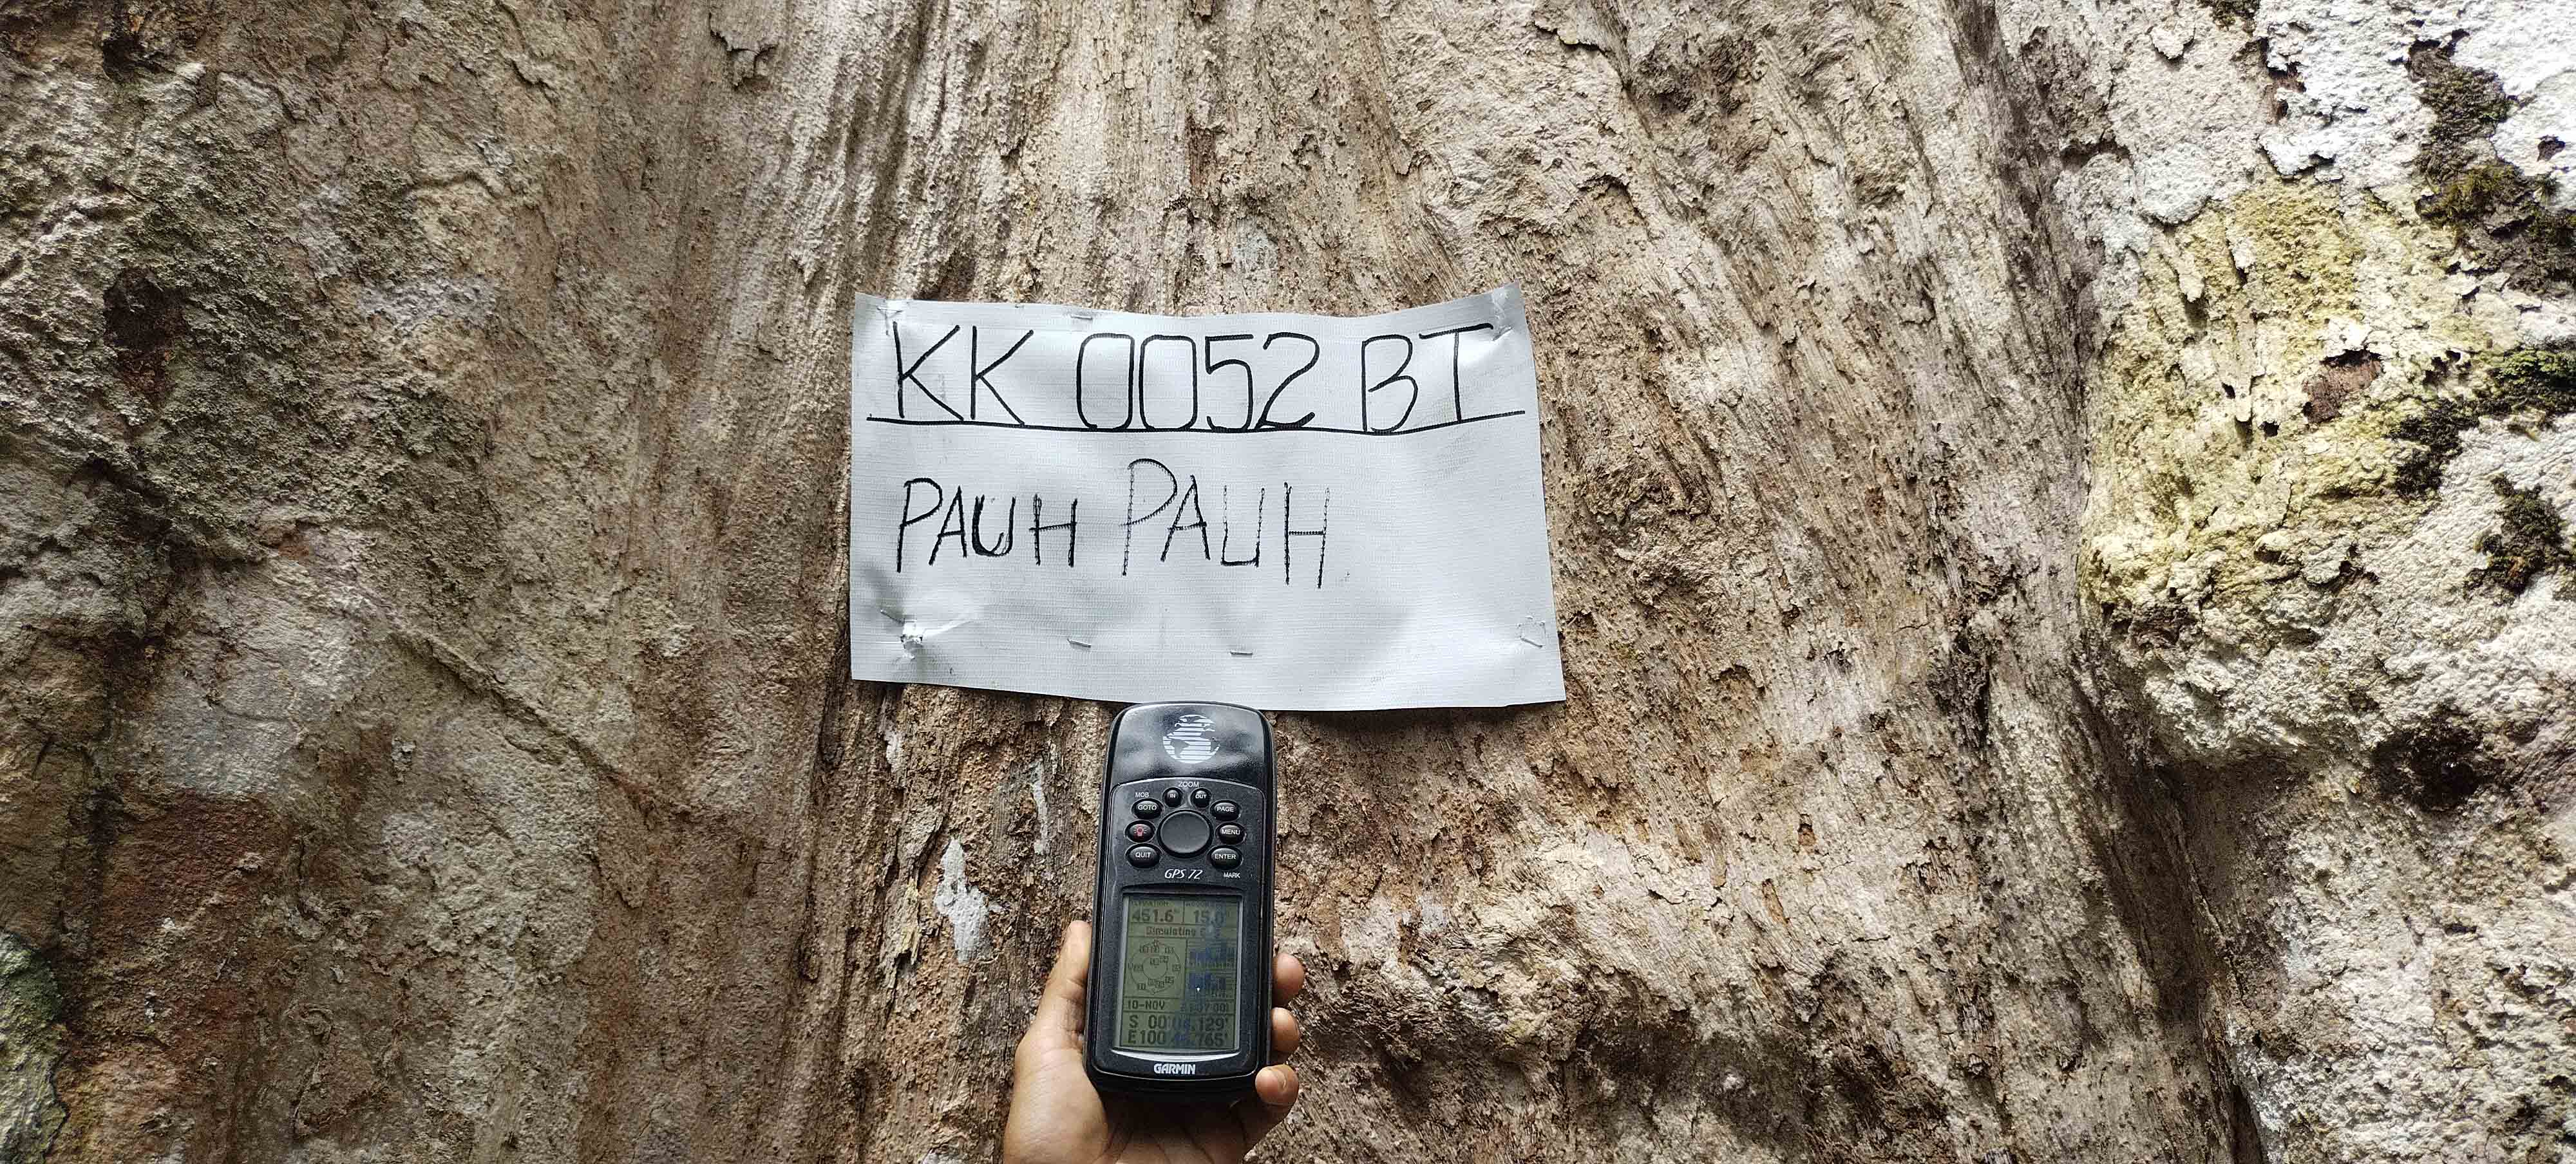 KK 0052 BT
PAUH PAUH
ZOOM
MOB IN OUT
GOTO PAGE
MENU
QUIT ENTER
GPS 72 MARK
451.6 15.0
Simulating
10-NOV
S 00
129'
E100
765'
GARMIN